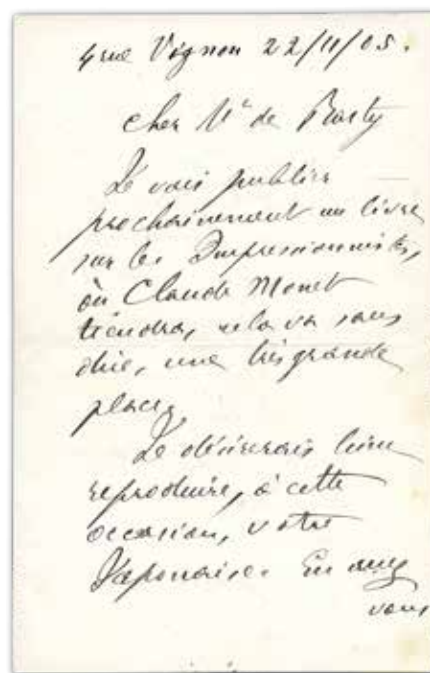 4 rue Vignon 22/11/05.
cher Mr de Rasty
Je vais publier
prochainement un livre
sur les Impressionnistes,
où Claude Monet
tiendra, cela va sans
dire, une très grande
place.
Je désirerais bien
reproduire, à cette
occasion, votre
Japonaise. En avez
vous